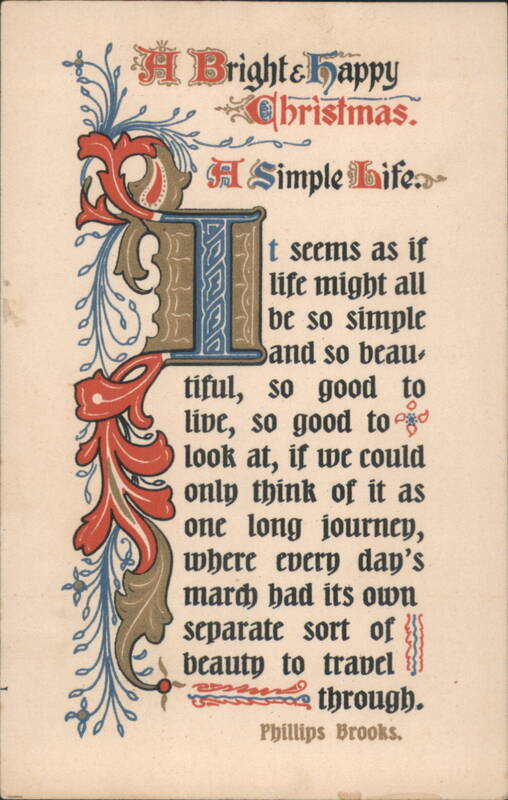 A Bright & Happy
Christmas.
A Simple Life.
It seems as if
life might all
be so simple
and so beau-
tiful, so good to
live, so good to
look at, if we could
only think of it as
one long journey,
where every day's
march had its own
separate sort of
beauty to travel
through.
Phillips Brooks.